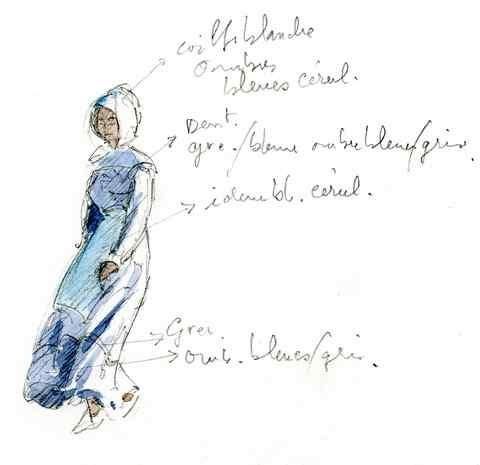 coiffe blanche
ombres
bleues cérul.
gre./blanc ombre bleues/gris.
idem bl. cérul.
Grei
omb. bleues/gris.